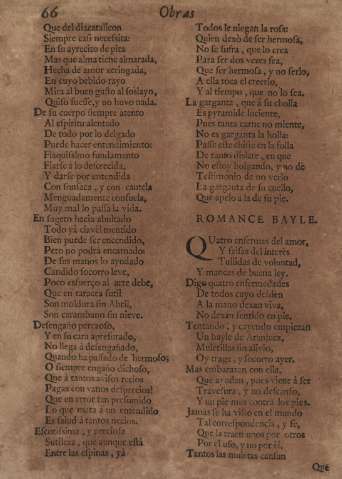 66 Obras
Que del
Siempre casi necessita:
En su ayrecito de pita
Mas que alma tiene almarada,
Hecha de amor
En cuyo bebido rayo
Mira al buen gusto al soslayo,
Quiso fuesse, y no huvo nada.
De su cuerpo siempre atento
Al espiritu alentado
De todo por lo delgado
Puede hazer entendimiento:
Flaquissimo fundamento
Fiarse à lo
Y darse por entendida
Con y con cautela
Menguadamente consuela,
Muy mal lo passa la vida.
En sugeto hacia abultado
Todo yà clavel mentido
Bien puede ser encendido,
Pero no podrà encarnado:
De sus manos lo ayudado
Candido socorro leve,
Poco esfuerço al arte debe,
Que en
Son moldura sin Abril,
Son carambano sin nieve.
Desengaño perezoso,
Y en su cara apresurado,
No llega à desengañado,
Quando ha passado de hermoso;
O siempre engaño dichoso,
Que à tantos avisos necios
Pagas con vanos desprecios!
Que en error tan presumido
Lo que mata à un entendido
Es salud à tantos necios.
y
Sutileza, que aunque està
Entre las espinas, yà
Todos le niegan la rosa:
Quien dexò de ser hermosa,
No se sufra, que lo crea
Para ser dos vezes fea,
Que ser hermosa, y no serlo,
A ella toca el creerlo,
Y al tiempo, que no lo sea.
La garganta, que à su cholla
Es pyramide luciente,
Pues tanta carne no miente,
No es garganta la holla:
Passe este chiste en la folla
De tanto disfate, en que
No estoy holgando, y no dè
Testimonio de un verlo
La garganta de su cuello,
Que apelo à la de su pie.
ROMANCE BAYLE.
QUatro enfermas del amor,
Y falsas del interès
Tullidas de voluntad,
Y mancas de buena ley.
Digo quatro enfermedades
De todos cuyo desden
A la mano dexan viva,
No dexan sentido en pie.
Tentando, y cayendo empiezan
Un bayle de Aranjuez,
Muletillas sin alivio,
Oy trage, y socorro ayer.
Mas embarazan con ella,
Que ayudan, pues viene à ser
Travesura, y no descanso,
Y un pie mas contra los pies.
Jamàs se ha visto en el mundo
Tal correspondencia, y fè,
Que la traen unos por otros
Por el uso, y no por èl.
Tantos las muletas cansan
Que